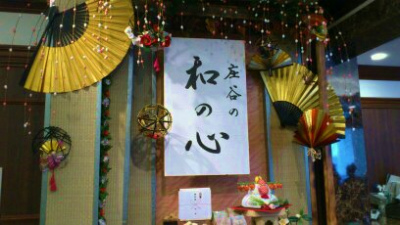 庄谷の
和の心